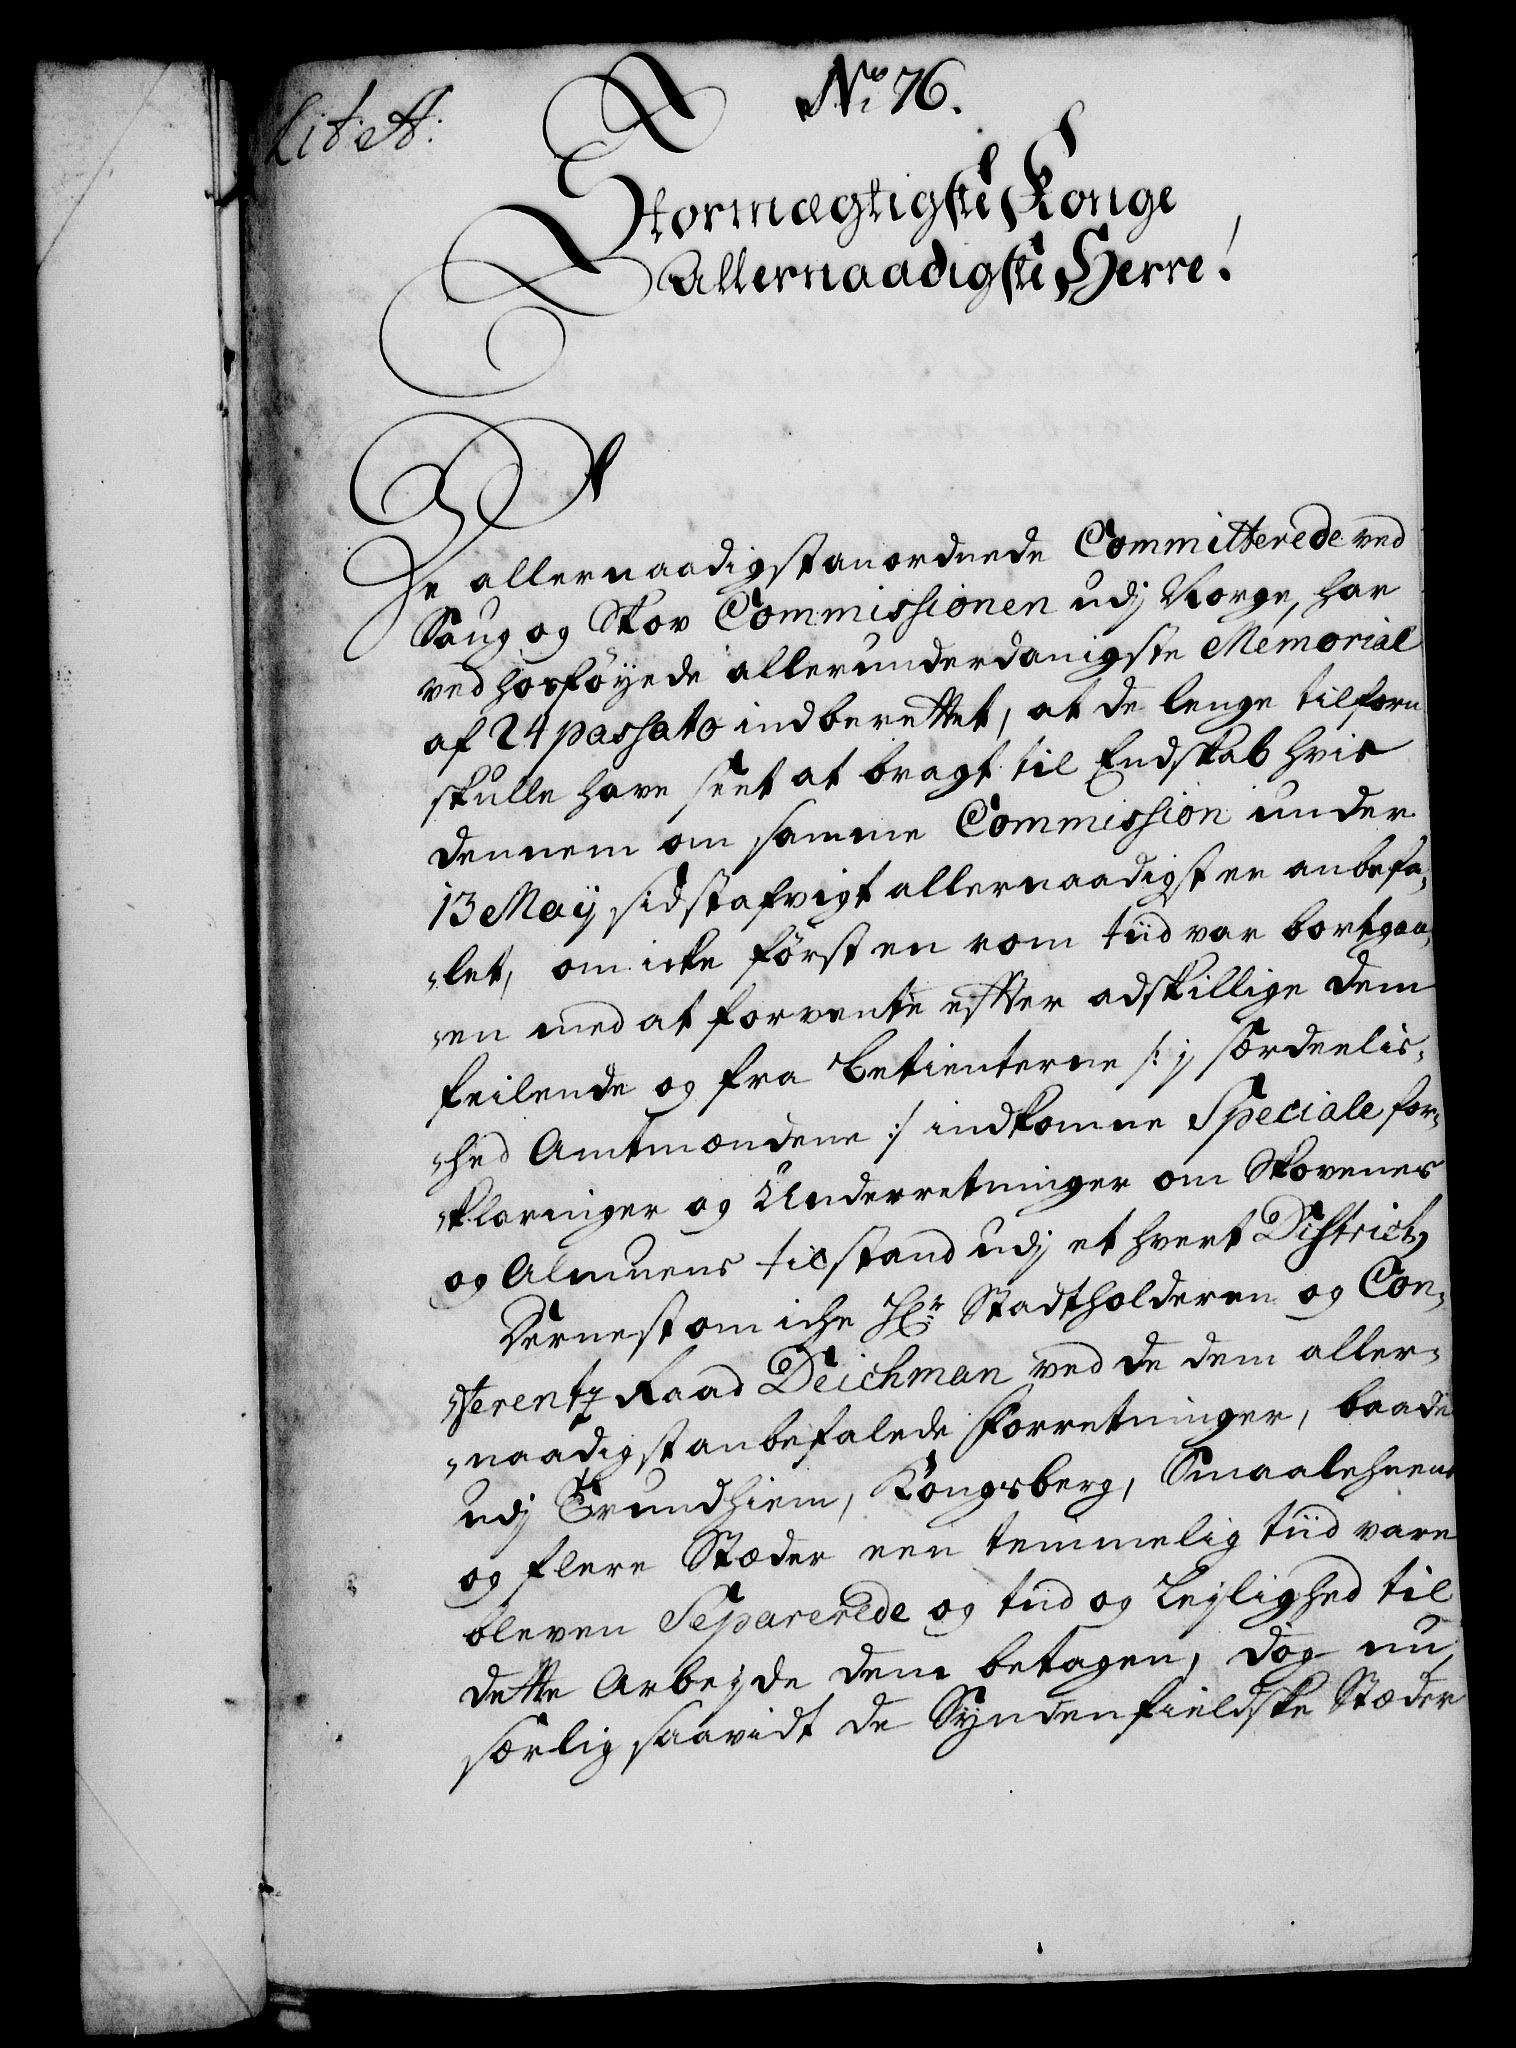 No. 76.
Lit: A:
Stormægtigste Konge
Allernaadigste Herre!
De allernaadigst anordnede Committerede ved
Saug og Skov Commissionen udj Norge, har
ved hosføyede allerunderdanigste Memorial
af 24 passato indberettet, at de lenge tilforn
skulle have seet at bragt til Endskab hvis
dennem om samme Commission under
13 Maij sidstafvigt allernaadigst er anbefa,,
,,let, om icke først en rom tiid var bortgaa,,
,,en med at forvente effter adskillige dem
feilende og fra betienterne /: j særdeelis,,
,,hed Amtmændene :/ indkomne Speciale for,,
,,klaringer og Underretninger om Skovenes
og Almuens tilstand udj et hvert District,
Dernest om iche Hr: Stadtholderen og Con,,
,,ferentz Raad Deichman ved de dem aller,,
,,naadigst anbefalede Forretninger, baade
udj Trundhiem, Kongsberg, Smaalehnene
og flere Stæder een temmelig tiid vare
bleven Separerede og tiid og Lejlighed til
dette Arbejde dem betagen, dog nu
særlig saavidt de Syndenfieldske Stæder